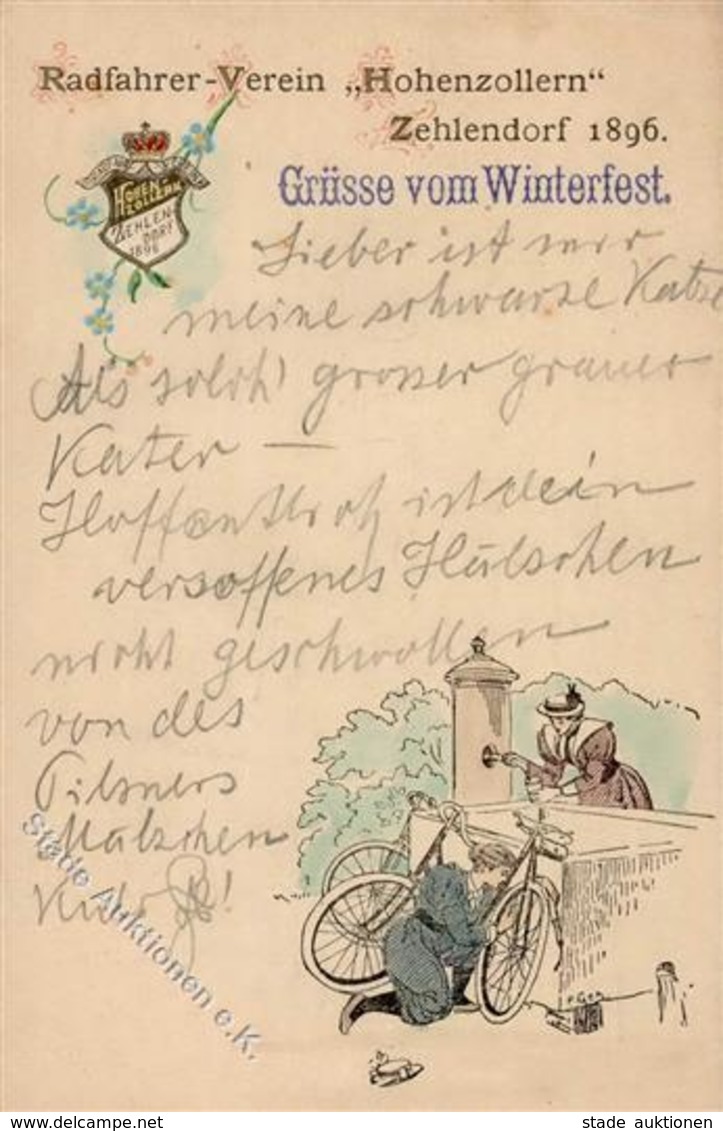 Radfahrer-Verein „Hohenzollern“
Zehlendorf 1896.
HOHEN
ZOLLERN
ZEHLEN-
DORF
1896
Grüsse vom Winterfest.
Lieber ist mir
meine schwarze Katze
Als solch' grosser grauer
Kater —
Hoffentlich ist dein
versoffenes Hälschen
nicht geschwollen
von des
Pilsners
Mälzchen
Stade Auktionen e.K.
www.delcampe.net
stade auktionen